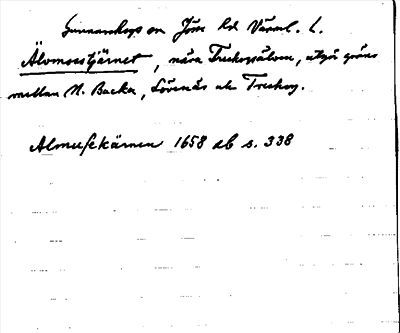 Gunnarskogs sn Jösse hd Värml. l.
Älvmossetjärnet, nära Treskogsälven, utgör gräns
mellan N. Backa, Lövenäs och Treskog.
Almusekärnen 1658 ab s. 338